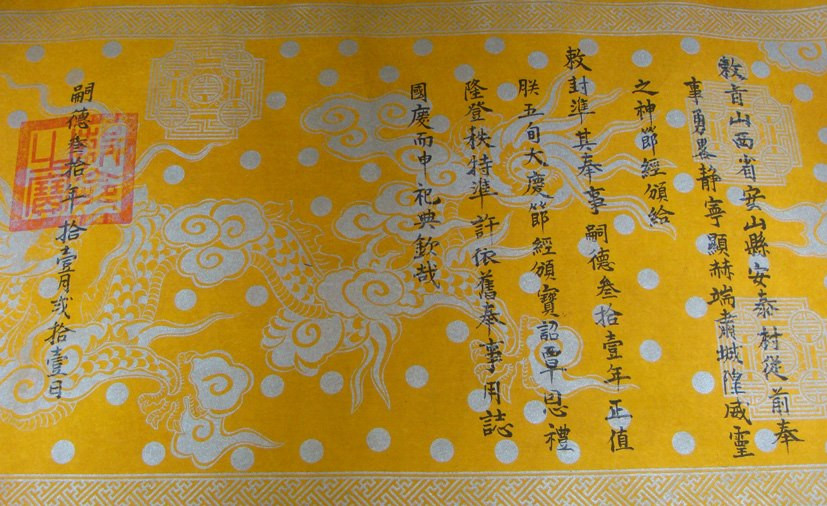 敕旨山西省安山縣安泰村從前奉
事勇畧靜寧顯赫端肅城隍威靈
之神節經頒給
敕封準其奉事嗣德叁拾壹年正值
朕五旬大慶節經頒寶詔覃恩禮
隆登秩特準許依舊奉事用誌
國慶而申祀典欽哉
嗣德叁拾年拾壹月貳拾壹日